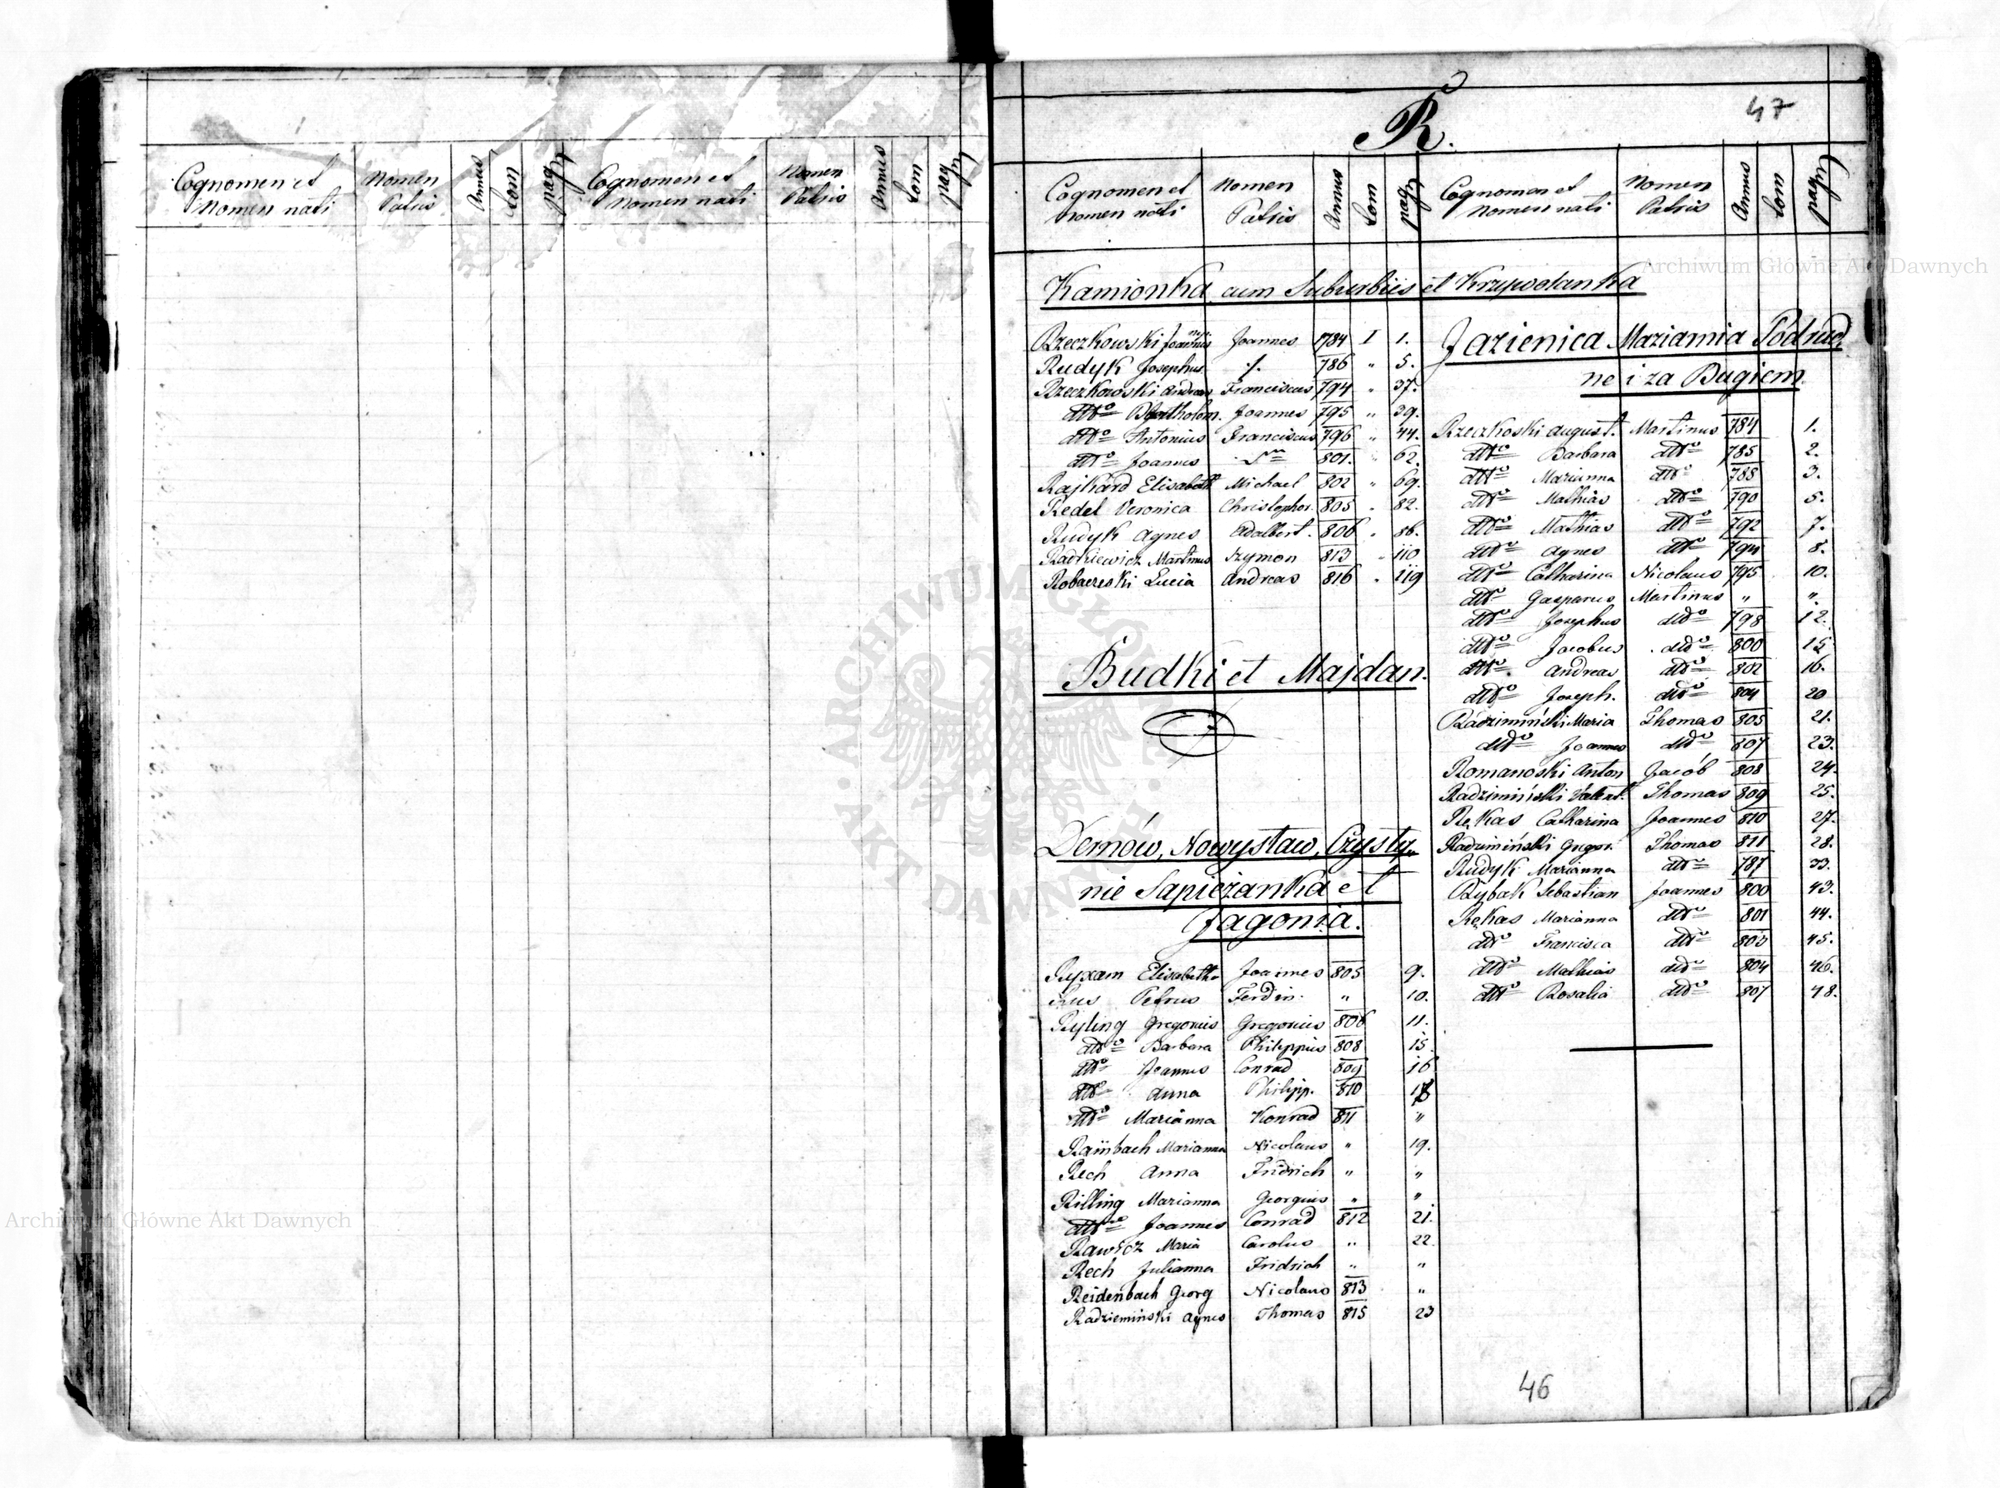 Cognomen et Nomen nati | Nomen Patris | Annus | Tom | pag | Cognomen et Nomen nati | Nomen Patris | Annus | Tom | pag
47
R.
Cognomen et Nomen nati | Nomen Patris | Annus | Tom | pag | Cognomen et Nomen nati | Nomen Patris | Annus | Tom | pag
Kamionka cum Suburbiis et Krzywolanka
Rzeczkowski Joannes Joannes 1784 I 1.
Rudyk Josephus 786 " 5.
Rzeczkowski Andreas Franciscus 794 " 37.
dtto Bartholom. Joannes 795 " 39.
dtto Antonius Franciscus 796 " 44.
dtto Joannes 801. " 62.
Rajhard Elisabeth Michael 802 " 69.
Redel Veronica Christophor. 805 " 82.
Rudyk Agnes Adalbert. 806 " 86.
Radkiewicz Martinus Szymon 813 " 110
Robaczeski Lucia Andreas 816 " 119
Budki et Majdan.
Dernów, Nowystaw, Czysty-
nie Sapiezanka et
Jagonia.
Elisabeth Joannes 805 9.
Rus Petrus Ferdin. " 10.
Ryling Gregorius Gregorius 806 11.
dtto Barbara Philippus 808 15.
dtto Joannes Conrad 809 16
dtto Anna Philipp. 810
dtto Marianna Konrad 811 "
Rambach Marianna Nicolaus " 19.
Rech Anna Fridrich " "
Rilling Marianna Georgius " "
dtto Joannes Conrad 812 21.
Rawicz Maria Carolus " 22.
Rech Julianna Fridrich " "
Reidenbach Georg Nicolaus 813 "
Radziemiński Agnes Thomas 815 23
Jazienica Maziarnia Podrud-
ne i za Bugiem
Rzeczkoski August. Martinus 784 1.
dtto Barbara dtto 785 2.
dtto Marianna dtto 788 3.
dtto Mathias dtto 790 5.
dtto Mathias dtto 792 7.
dtto Agnes dtto 794 8.
dtto Catharina Nicolaus 795 10.
dtto Gasparus Martinus " "
dtto Josephus dtto 798 12.
dtto Jacobus dtto 800 15.
dtto Andreas dtto 802 16.
dtto Joseph. dtto 804 20
Radzimiński Maria Thomas 805 21.
dtto Joannes dtto 807 23.
Romanoski Anton Jacób 808 24.
Radzimiński Valent. Thomas 809 25.
Rękas Catharina Joannes 810 27.
Radzimiński Gregor. Thomas 811 28.
Rudyk Marianna dtto 787 33.
Rybak Sebastian Joannes 800 43.
Rękas Marianna dtto 801 44.
dtto Francisca dtto 803 45.
dtto Mathias dtto 804 46.
dtto Rosalia dtto 807 48.
46
Archiwum Główne Akt Dawnych
Archiwum Główne Akt Dawnych
ARCHIWUM GŁÓWNE AKT DAWNYCH